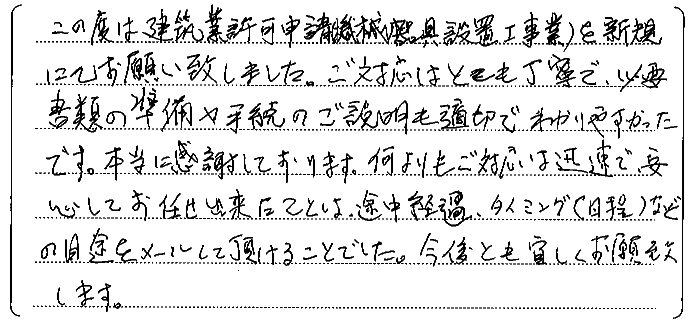 この度は建築業許可申請(機械器具設置工事業)を新規
にてお願い致しました。ご対応はとても丁寧で、必要
書類の準備や手続のご説明も適切でわかりやすかった
です。本当に感謝しております。何よりもご対応は迅速で、安
心してお任せ出来たことは、途中経過、タイミング(日程)など
の目途をメールして頂けることでした。今後とも宜しくお願い致
します。